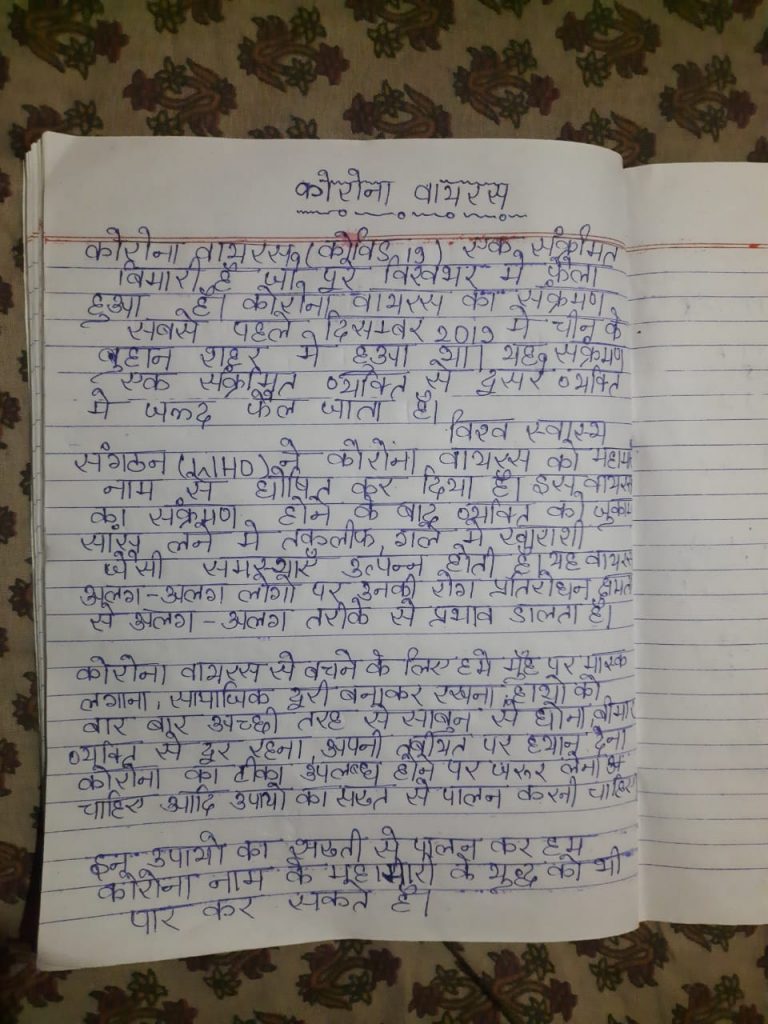 कोरोना वायरस
कोरोना वायरस (कोविड 19) एक संक्रमित
बिमारी है जो पूरे विश्वभर में फैला
हुआ है। कोरोना वायरस का संक्रमण
सबसे पहले दिसम्बर 2019 मे चीन के
वुहान शहर मे हुआ था। यह संक्रमण
एक संक्रमित व्यक्ति से दूसरे व्यक्ति
मे जल्द फैल जाता है।
विश्व स्वास्थ्य
संगठन (WHO) ने कोरोना वायरस को महामारी
नाम से घोषित कर दिया है। इस वायरस
का संक्रमण होने के बाद व्यक्ति को जुकाम
सांस लेने मे तकलीफ, गले मे खराशी
जैसी समस्याएं उत्पन्न होती है। यह वायरस
अलग-अलग लोगो पर उनकी रोग प्रतिरोधन क्षमता
से अलग-अलग तरीके से प्रभाव डालता है।
कोरोना वायरस से बचने के लिए हमे मुँह पर मास्क
लगाना, सामाजिक दूरी बनाकर रखना, हाथो को
बार बार अच्छी तरह से साबुन से धोना, बीमार
व्यक्ति से दूर रहना, अपनी तबीयत पर ध्यान देना
कोरोना का टीका उपलब्ध होने पर जरूर लेना
चाहिए आदि उपायो का सख्त से पालन करनी चाहिए
इन उपायो का सख्ती से पालन कर हम
कोरोना नाम के महामारी के युद्ध को भी
पार कर सकते है।